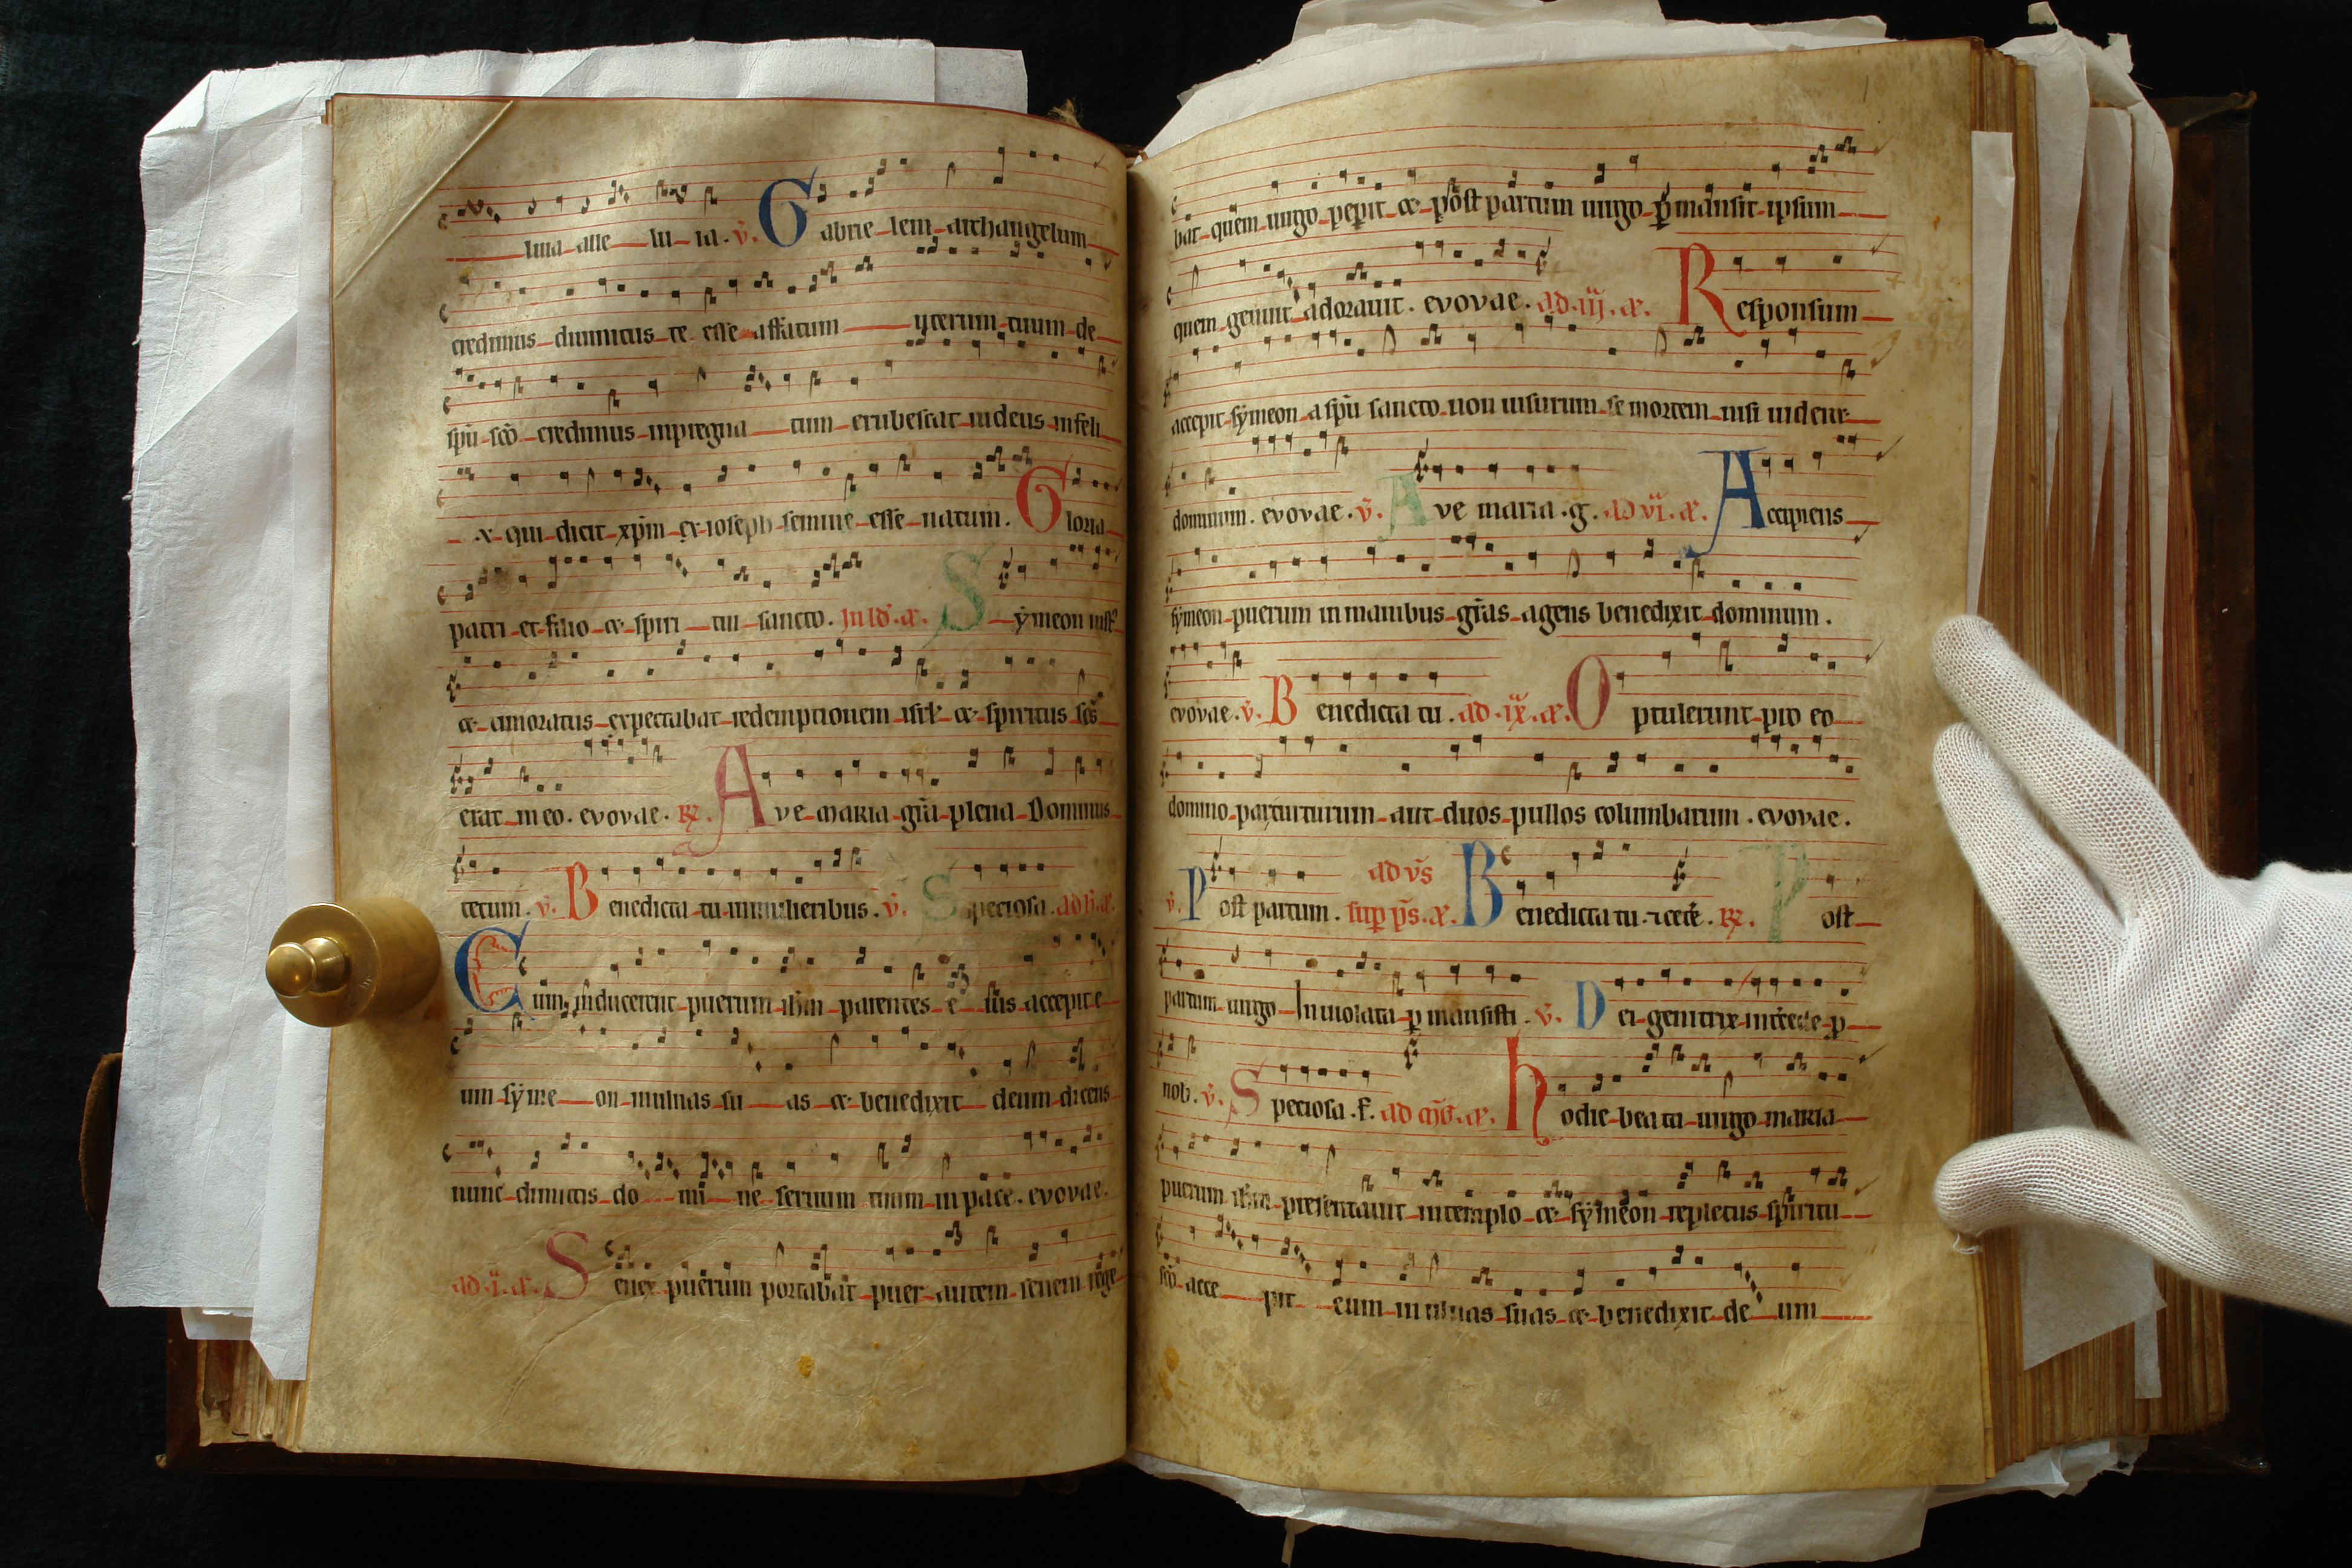 luia alle lu ia. v. Gabrie lem archangelum
credimus diuinitus te esse affatum uterum tuum de
spu sco credimus inpregna tum erubescat iudeus infeli
x qui dicit xpm ex ioseph semine esse natum. Gloria
patri et filio & spiri tui sancto. In ld. a. Symeon iust
& timoratus expectabat redemptionem isrl & spiritus scs
erat in eo. evovae. R. Ave maria gra plena Dominus
tecum. v. Benedicta tu in mulieribus. v. Speciosa. ad b. a.
Cum inducerent puerum ihm parentes e ius accepit e
um syme on in ulnas su as & benedixit deum dicens
nunc dimittis do mi ne seruum tuum in pace. evovae.
ad .i. a. Senex puerum portabat puer autem senem rege
bat quem uirgo peperit & post partum uirgo pmansit ipsum
quem genuit adorauit. evovae. ad .iij. æ. Responsum
accepit symeon a spu sancto non uisurum se mortem nisi uidere
dominum. evovae. v. Ave maria .g. ad vi. æ. Accipiens
symeon puerum in manibus gras agens benedixit dominum.
evovae. v. Benedicta tu. ad .ix. æ. Optulerunt pro eo
domino par turturum aut duos pullos columbarum. evovae.
ad vs
v. Post partum. sup ps. æ. Benedicta tu. R. Post
partum uirgo Inuiolata p mansisti. v. Dei genitrix intcede p
nob. v. Speciosa. f. ad mg. æ. hodie beata uirgo maria
puerum ihm presentauit in templo & symeon repletus spiritu
sco acce pit eum in ulnas suas & benedixit de um